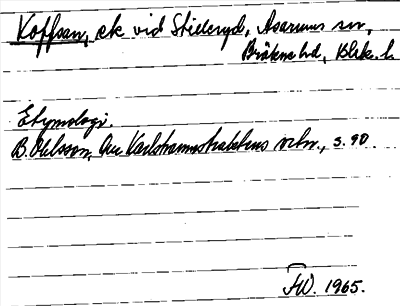 Koffsan, ek vid Stilleryd, Asarums sn,
Bräkne hd, Blek. l.
Etymologi.
B. Ohlsson, Om Karlshamnstraktens ortn., s. 90.
FW. 1965.